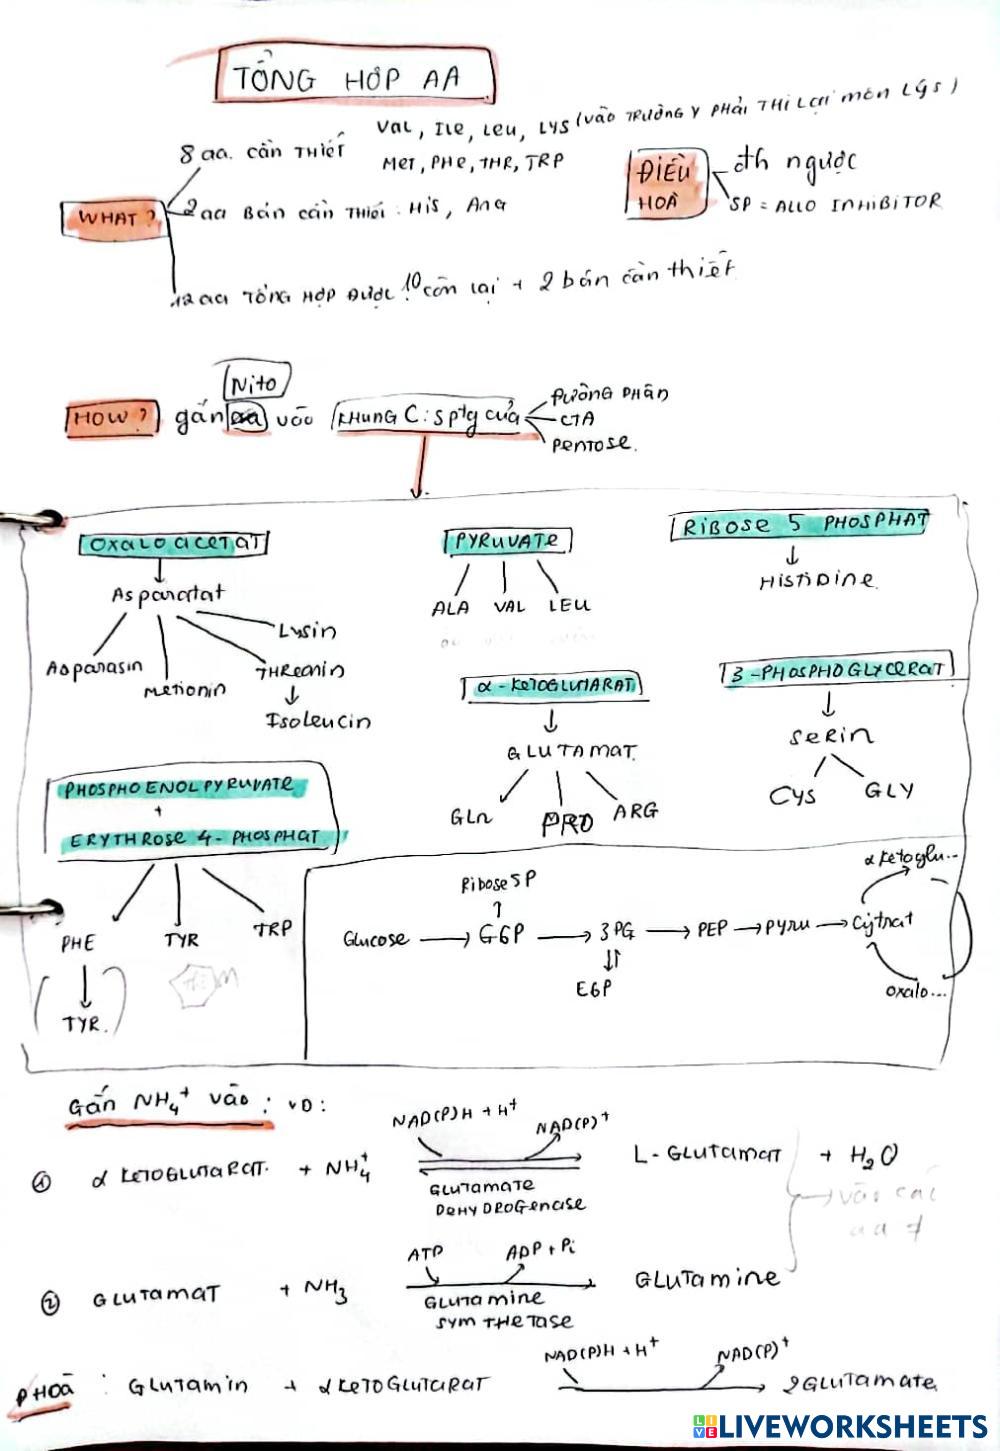 TỔNG HỢP AA
8 aa. CẦN THIẾT
VAL, ILE, LEU, LYS (VÀO TRƯỜNG Y PHẢI THI LẠI MÔN LÝS)
MET, PHE, THR, TRP
WHAT?
2 aa BÁN CẦN THIẾT : HIS, ARG
12 aa TỔNG HỢP ĐƯỢC : 10 còn lại + 2 bán cần thiết
ĐIỀU HOÀ
đh ngược
SP = ALLO INHIBITOR
Nitơ
HOW? gắn vào KHUNG C : sptg của
ĐƯỜNG PHÂN
CTA
PENTOSE.
OXALOACETAT
Aspartat
Asparasin
Metionin
Threonin
Lysin
Isoleucin
PYRUVATE
ALA VAL LEU
RIBOSE 5 PHOSPHAT
HISTIDINE
α-KETOGLUTARAT
GLUTAMAT
GLn PRO ARG
3-PHOSPHOGLYCERAT
SERIN
CYS GLY
PHOSPHOENOLPYRUVATE
+
ERYTHROSE 4-PHOSPHAT
PHE TYR TRP
(TYR.)
Ribose5P
Glucose → G6P → 3PG → PEP → Pyru → Cytrat
E6P
α ketoglu...
oxalo...
Gắn NH₄⁺ vào : VD:
① α KETOGLUTARAT + NH₄⁺
NAD(P)H + H⁺
NAD(P)⁺
GLUTAMATE
DEHYDROGENASE
L-GLUTAMAT + H₂O
vào các
aa ≠
② GLUTAMAT + NH₃
ATP
ADP + Pi
GLUTAMINE
SYMTHETASE
GLUTAMINE
PHOÀ : GLUTAMIN + αKETOGLUTARAT
NAD(P)H + H⁺
NAD(P)⁺
2GLUTAMATE
LIVEWORKSHEETS